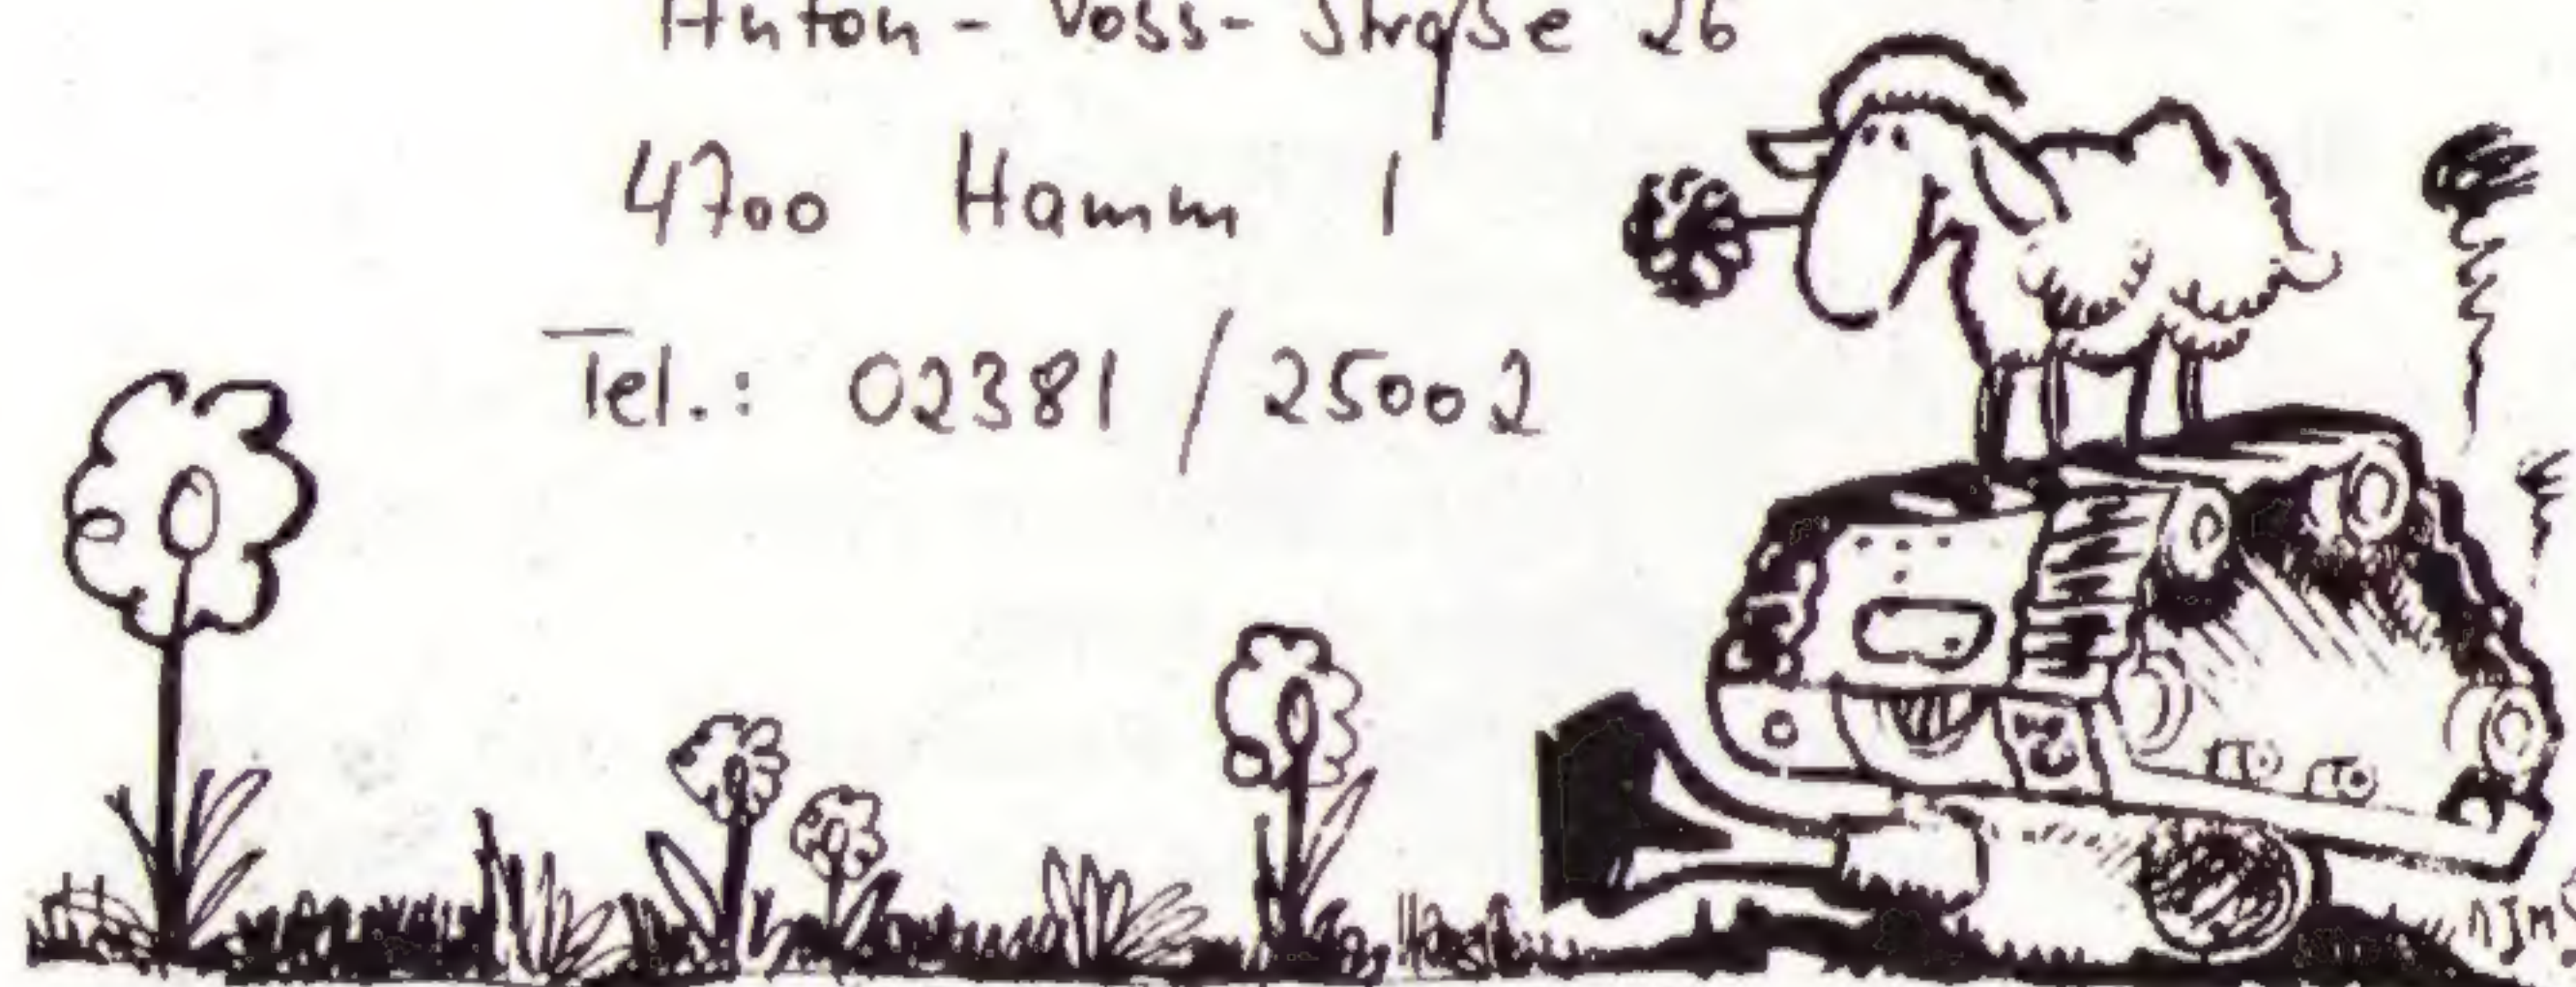 Anton-Voss-Straße 26
4700 Hamm 1
Tel.: 02381/25002